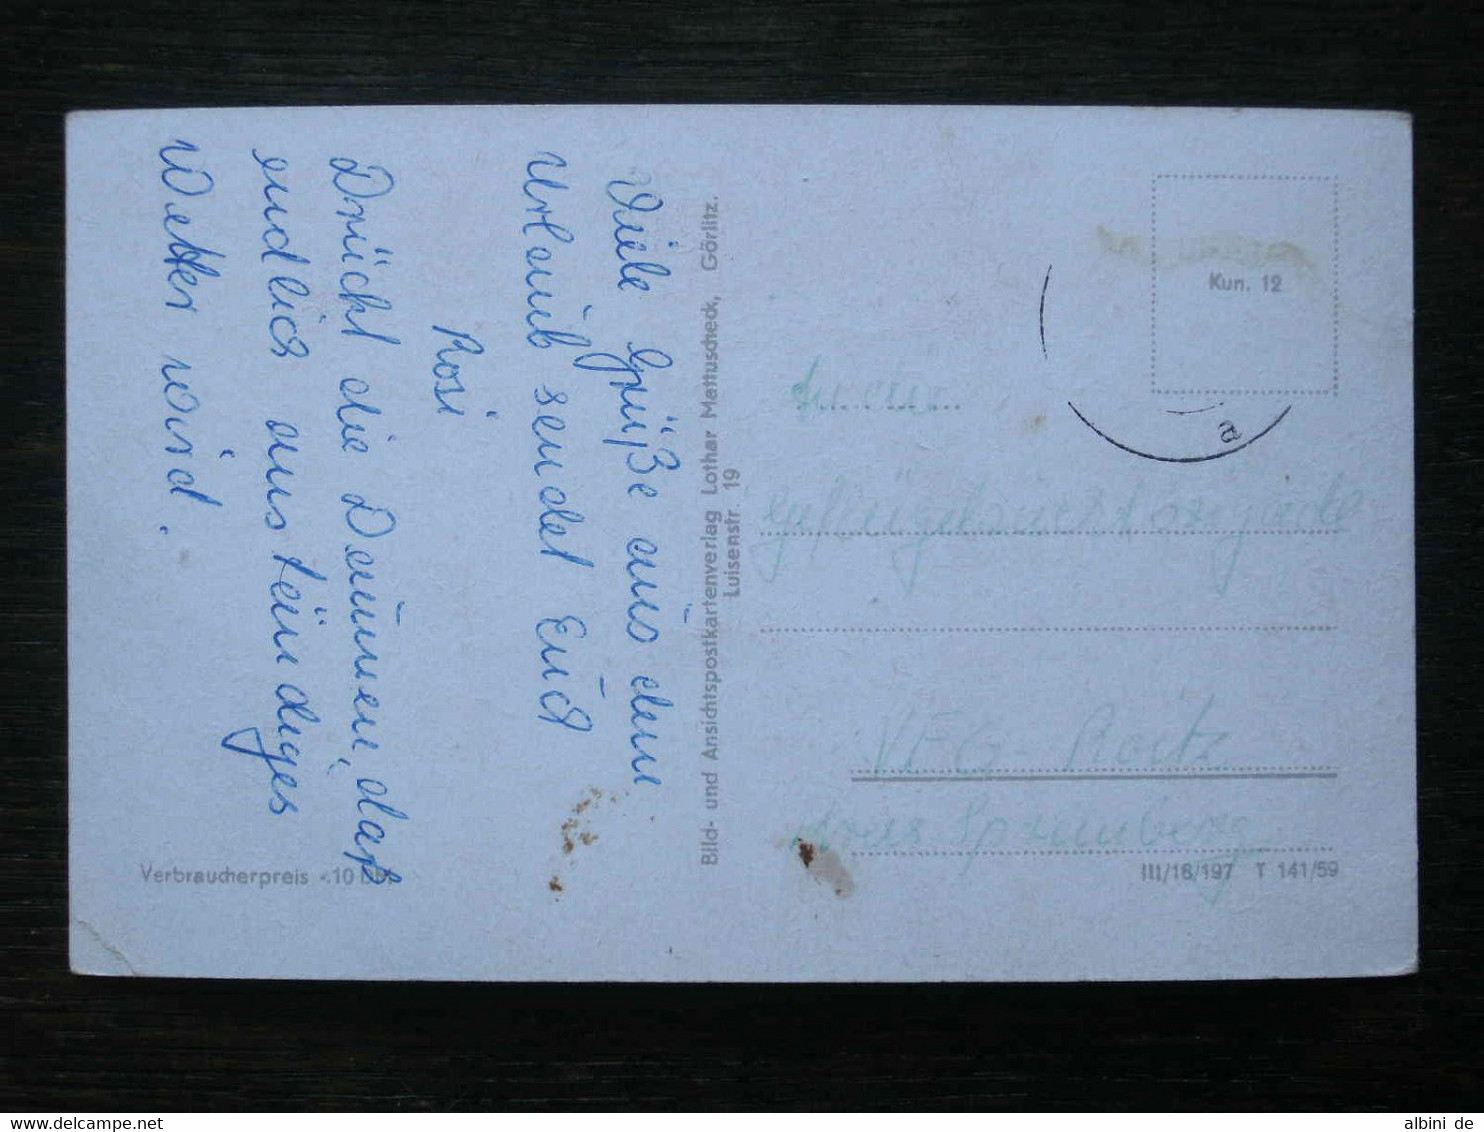 Viele Grüße aus dem
Urlaub sendet Euch
Rosi
Drückt die Daumen, daß
endlich anständiges
Wetter wird.
Verbraucherpreis -.10 DM
Bild- und Ansichtspostkartenverlag Lothar Mattuscheck, Görlitz.
Luisenstr. 19
Kun. 12
a
An die
VEG - Roitz
Kreis Spremberg
III/18/197 T 141/59
www.delcampe.net
albini de